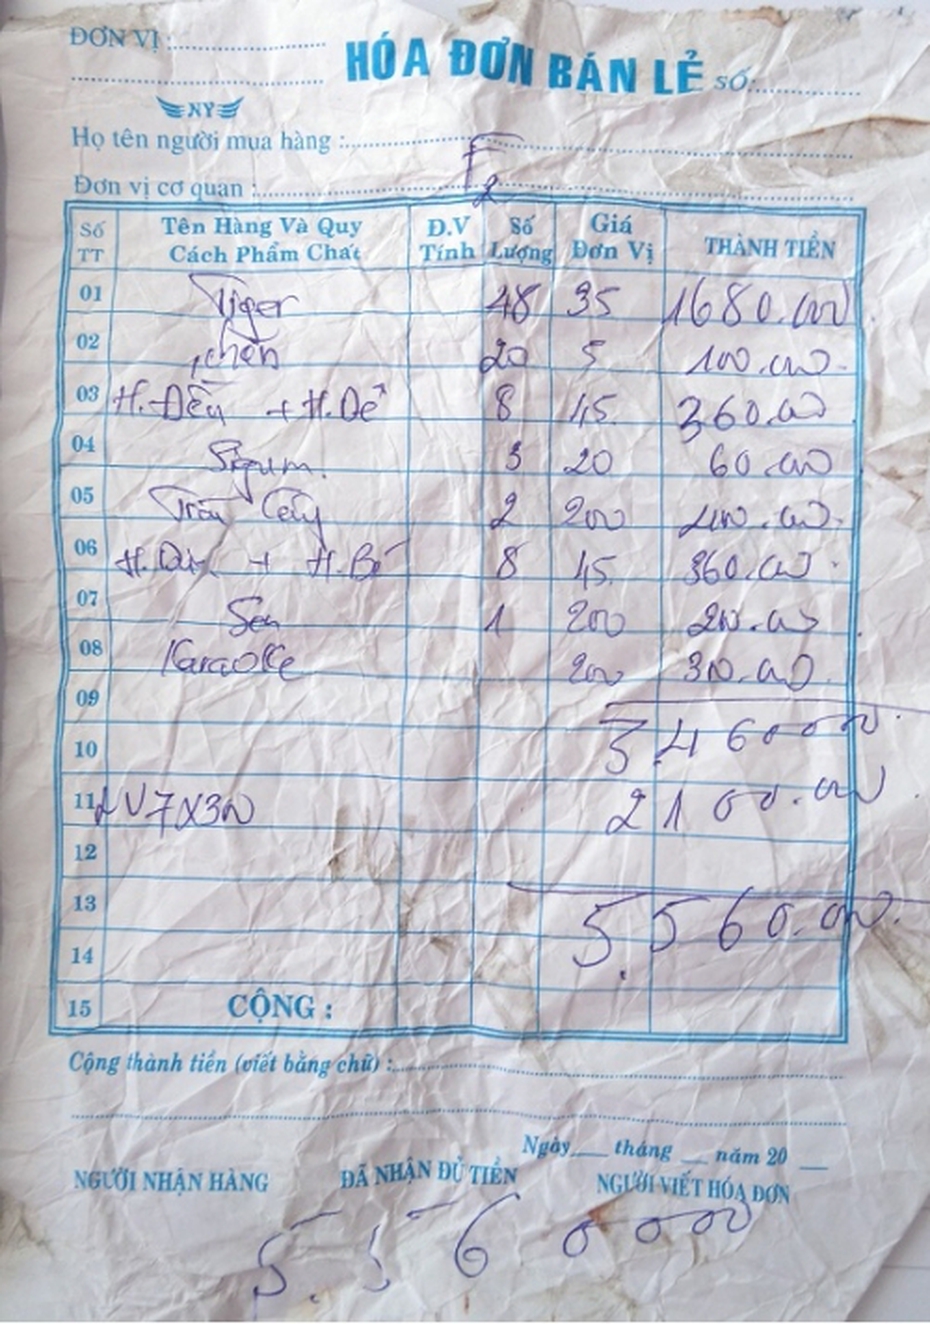 ĐƠN VỊ :
HÓA ĐƠN BÁN LẺ SỐ:
NY
Họ tên người mua hàng :
F2
Đơn vị cơ quan :
Số TT Tên Hàng Và Quy Cách Phẩm Chất Đ.V Tính Số Lượng Giá Đơn Vị THÀNH TIỀN
01 Tiger 48 35 1680.000
02 chén 20 5 100.000
03 H. + H. 8 45 360.000
04 3 20 60.000
05 Trái Cây 2 200 400.000
06 H. + H. 8 45 360.000
07 1 200 200.000
08 Karaoke 300.000
09
10 3.460000
11 LV 7X300 2100.000
12
13 5.560.000
14
15 CỘNG :
Cộng thành tiền (viết bằng chữ) :
Ngày tháng năm 20
NGƯỜI NHẬN HÀNG ĐÃ NHẬN ĐỦ TIỀN NGƯỜI VIẾT HÓA ĐƠN
5.560000